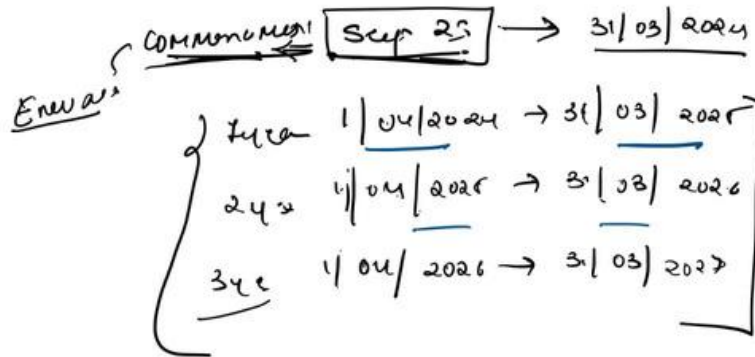 Commencement ← Sep 23 → 31/03/2024
1 year 1/04/2024 → 31/03/2025
2 yr 1/04/2025 → 31/03/2026
3 yr 1/04/2026 → 31/03/2027